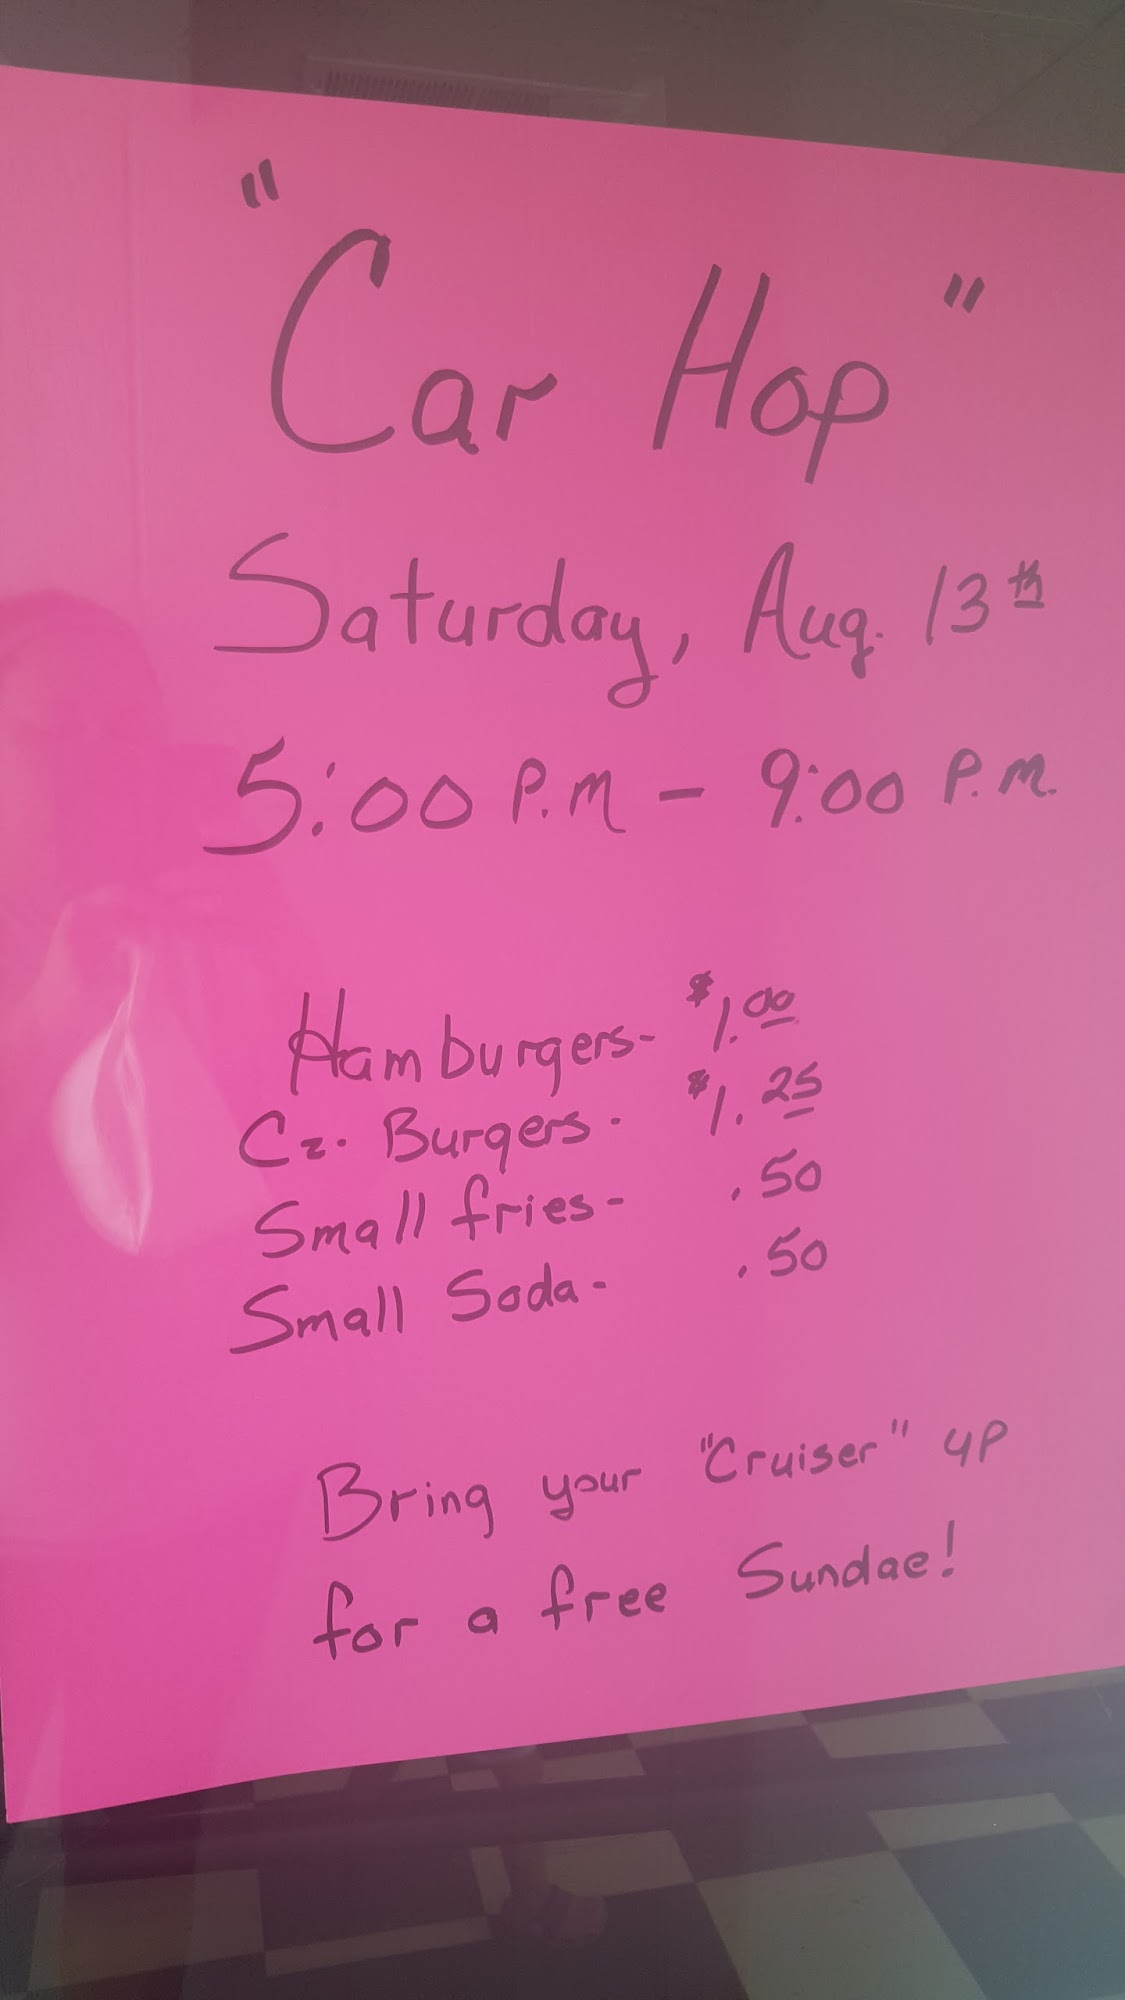 "Car Hop"
Saturday, Aug. 13th
5:00 P.M - 9:00 P.M.
Hamburgers- $1.00
Cz. Burgers- $1.25
Small fries- .50
Small Soda- .50
Bring your "Cruiser" up
for a free Sundae!